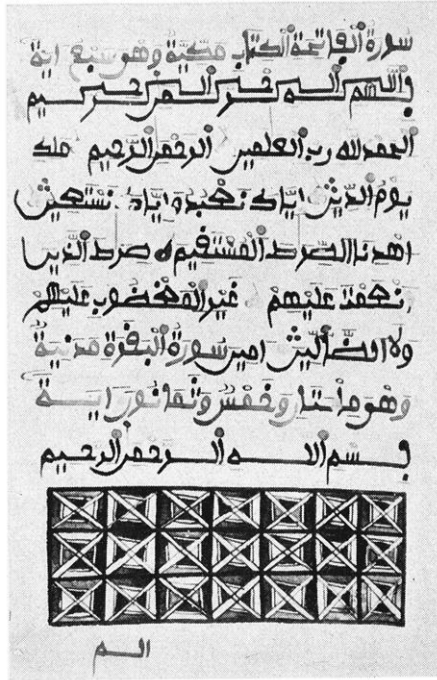 سورة ألفاتحة ألكتاب مكية وهو سبع اية
بسم الله الرحمن الرحيم
ألحمد لله رب ألعلمين ألرحمن ألرحيم ملك
يوم ألدين اياك نعبد واياك نستعين
اهدنا الصرط ألمستقيم صرط ألذين
أنعمت عليهم غير ألمغضوب عليهم
ولا الضألين امين سورة ألبقرة مدنية
وهو مأيتان وخمس وثمانون اية
بسم الله الرحمن الرحيم
الم